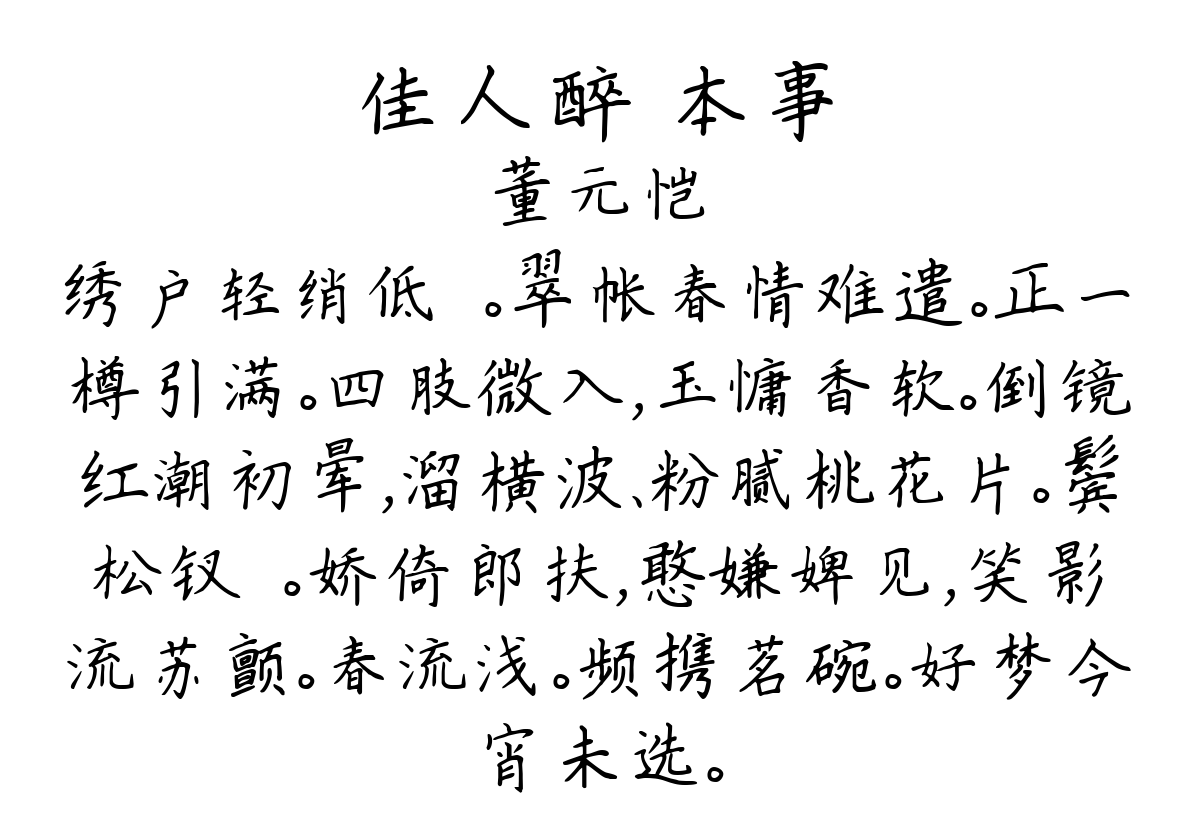 佳人醉 本事
董元恺
绣户轻绡低 。翠帐春情难遣。正一
樽引满。四肢微入,玉慵香软。倒镜
红潮初晕,溜横波、粉腻桃花片。鬓
松钗 。娇倚郎扶,憨嫌婢见,笑影
流苏颤。春流浅。频携茗碗。好梦今
宵未选。